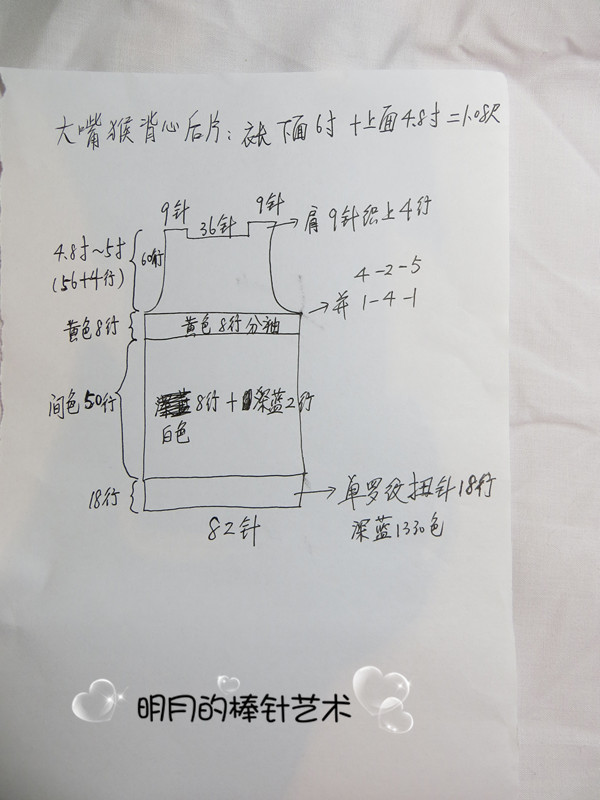 大嘴猴背心后片：衣长 下面6寸+上面4.8寸=1.08尺
9针
36针
9针
肩9针织上4行
4.8寸~5寸
(56+4行)
60行
4-2-5
并 1-4-1
黄色8行
黄色8行分袖
间色50行
8行+深蓝2行
白色
18行
单罗纹扭针18行
深蓝1330色
82针
明月的棒针艺术